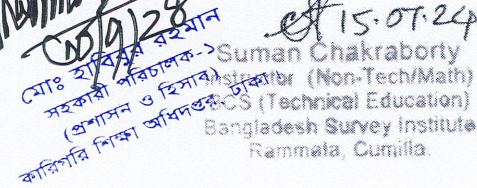 15.07.24
মোঃ হাবিবুর রহমান
সহকারী পরিচালক-১
(প্রশাসন ও হিসাব)
কারিগরি শিক্ষা অধিদপ্তর, ঢাকা
Suman Chakraborty
Instructor (Non-Tech/Math)
BCS (Technical Education)
Bangladesh Survey Institute
Rammala, Cumilla.